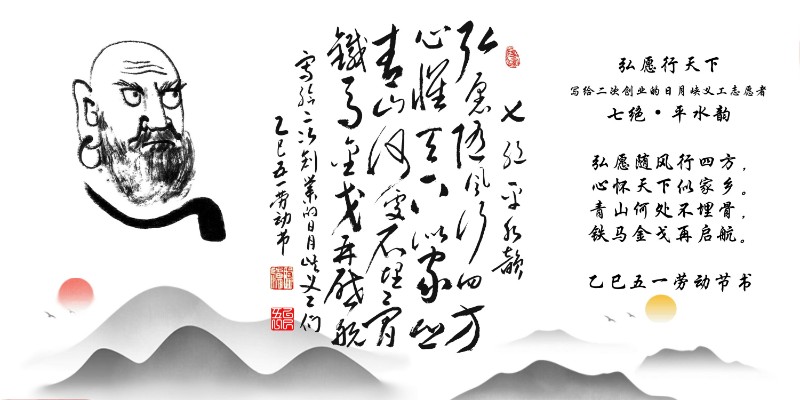 弘愿行天下
写给二次创业的日月峡义工志愿者
七绝·平水韵
弘愿随风行四方，
心怀天下似家乡。
青山何处不埋骨，
铁马金戈再启航。
乙巳五一劳动节书
七绝平水韵
弘愿随风行四方
心怀天下似家乡
青山何处不埋骨
铁马金戈再启航
写给二次创业的日月峡义工们
乙巳五一劳动节